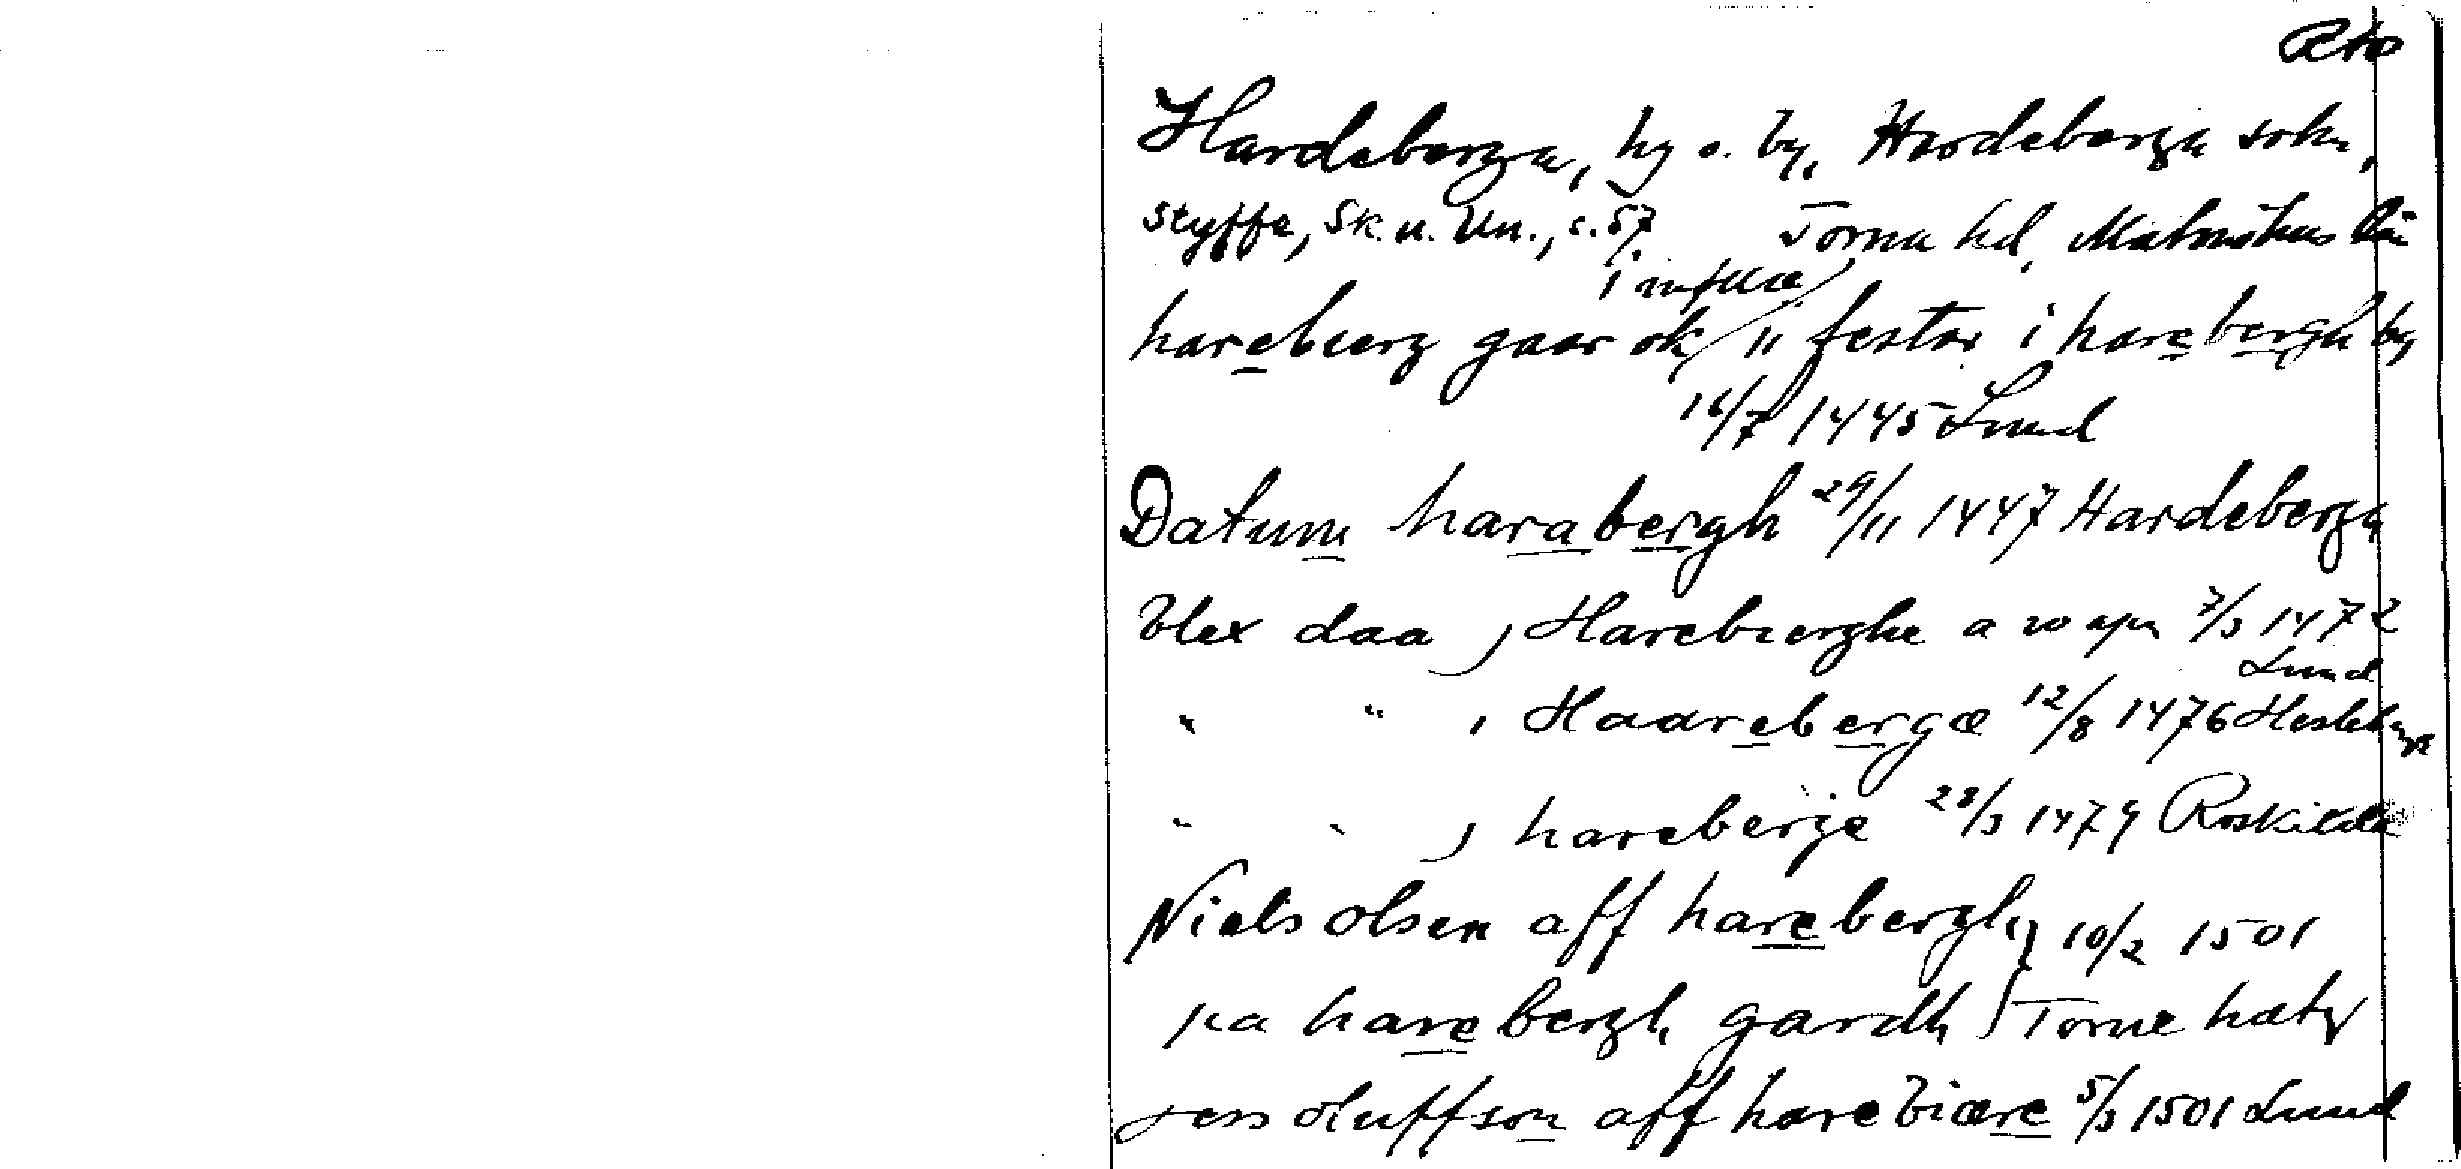 Hardeberga, hg o. by, Hardeberga sokn,
Styffe, Sk. u. Un., s. 57 Torna hd, Malmöhus län
hareberg gaar ok // festor i harebergh by
16/7 1445 Lund
Datum harabergh 29/11 1447 Hardeberga
Vlex daa j Harebierghe a wapn 7/3 1472
Lund
" " i Haarebergæ 12/8 1476
" " j harebergæ 28/3 1479 Roskilde
Niels olsen aff harebergh 10/2 1501
pa harebergh gardh Torne
jess oluffson aff harebiære 5/3 1501 Lund